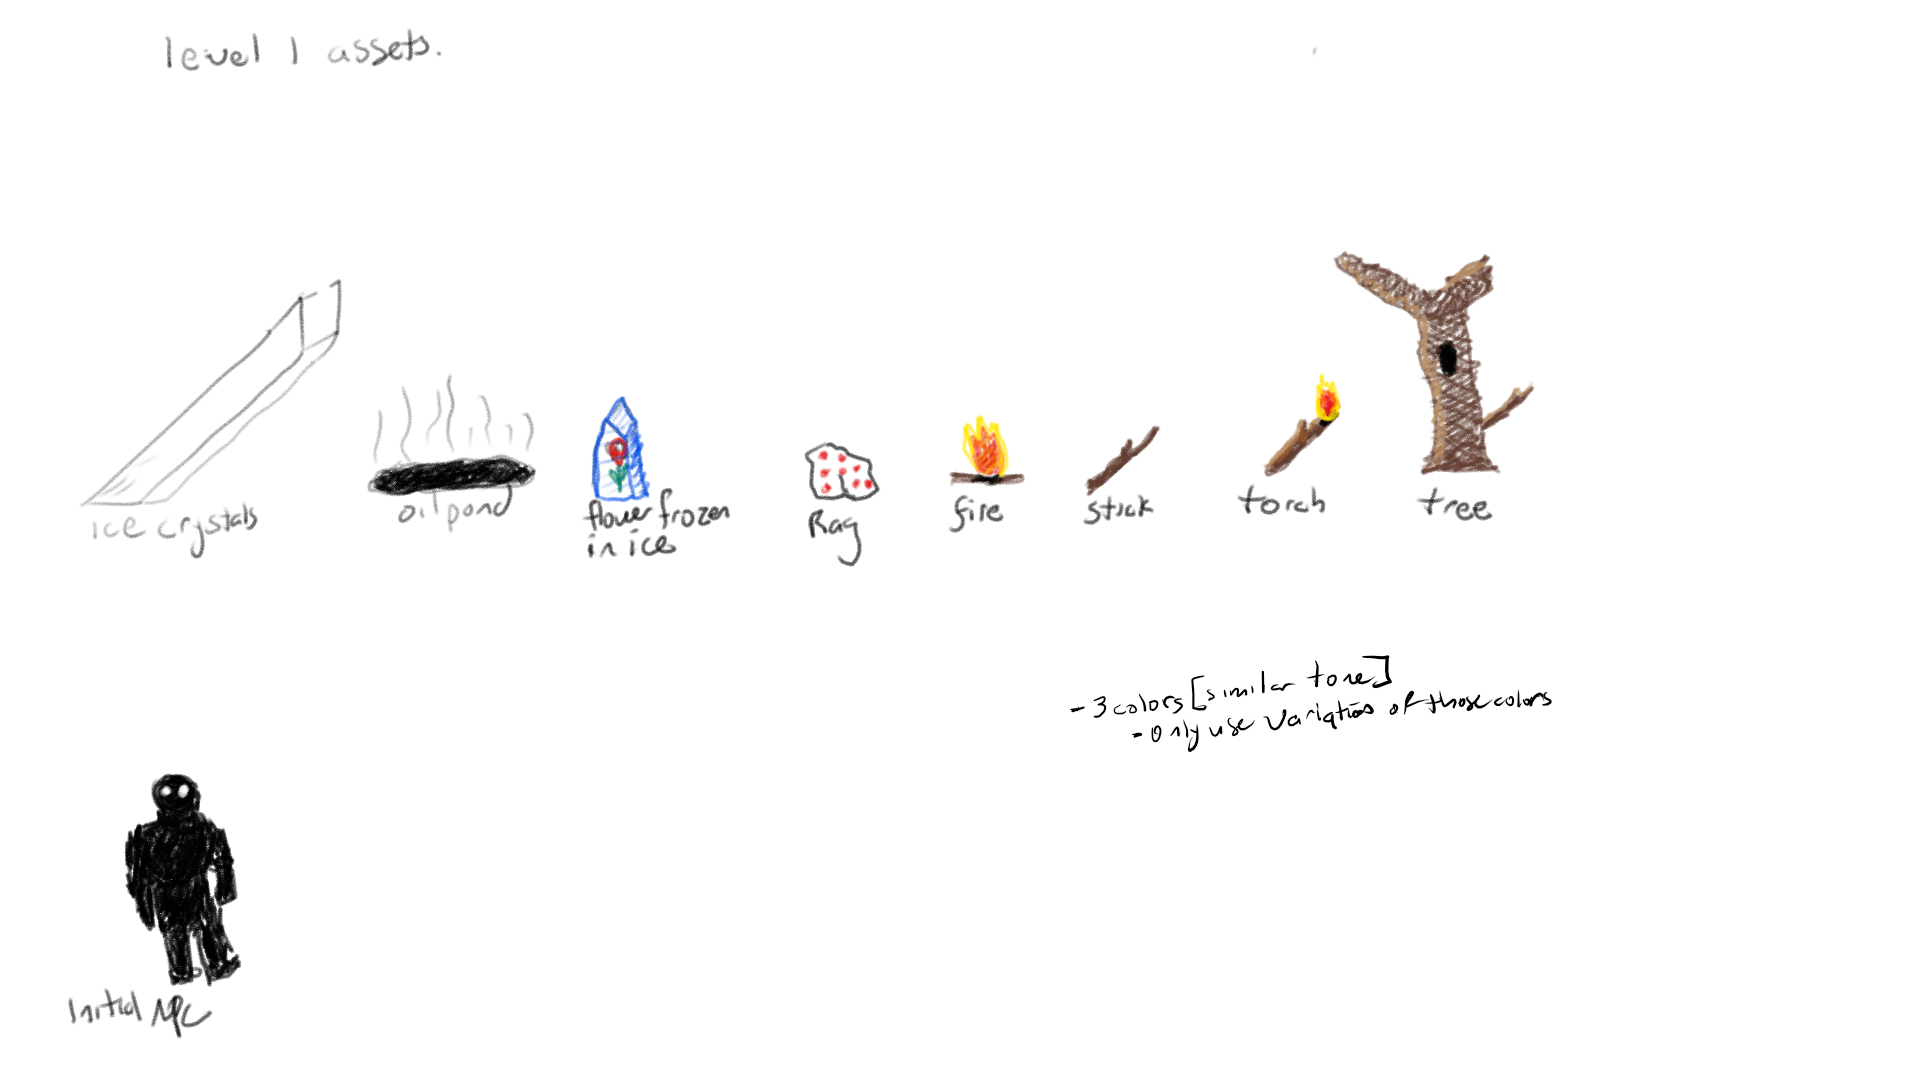 level 1 assets.
ice crystals
oil pond
flower frozen
in ice
Rag
fire
stick
torch
tree
- 3 colors [similar tone]
- only use variations of those colors
Initial NPC